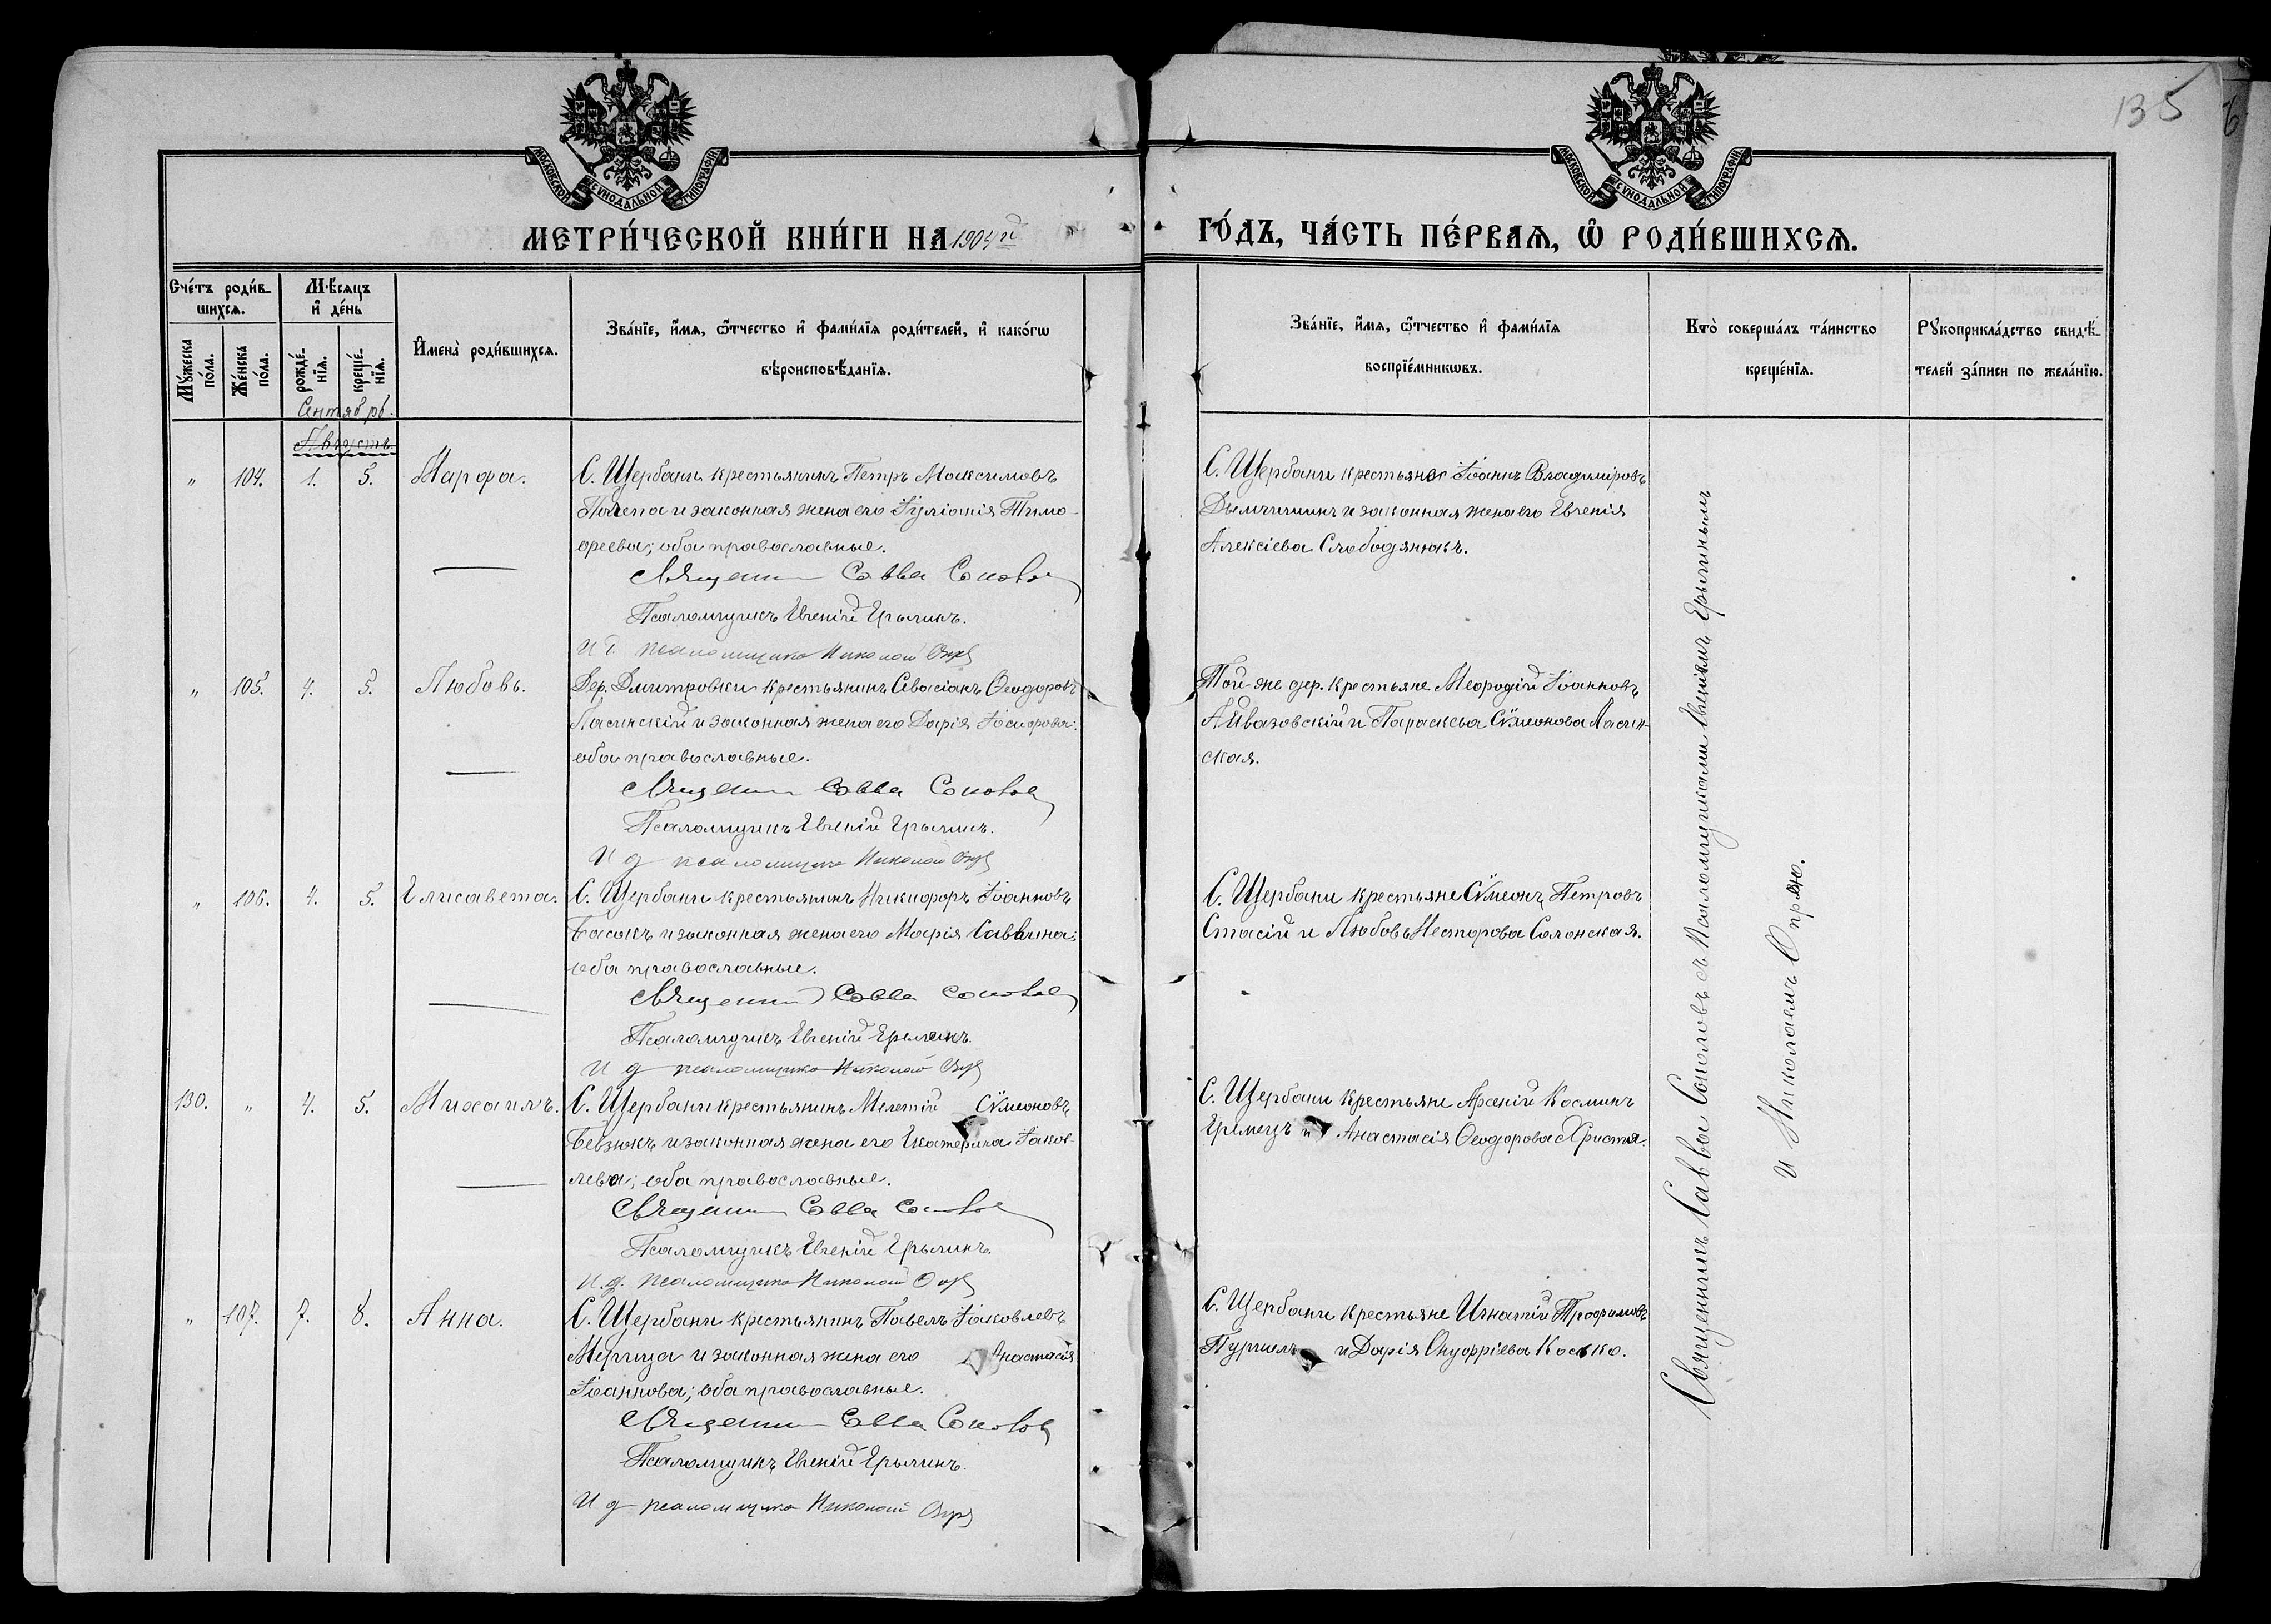 135
МОСКОВСКОЙ СѴНОДАЛЬНОЙ ТИПОГРАФІИ.
МОСКОВСКОЙ СѴНОДАЛЬНОЙ ТИПОГРАФІИ.
МЕТРИ́ЧЕСКОЙ КНИ́ГИ НА 1904й
ГО́ДЪ, ЧА́СТЬ ПЕ́РВАѦ, Ѿ РОДИ́ВШИХСѦ.
Сче́тъ роди́в-
шихсѧ.
Мꙋ́жеска по́ла.
Же́нска по́ла.
Мѣ́сѧцъ и҆ де́нь
рожде́-нїѧ.
креще́-нїѧ.
И҆мена̀ роди́вшихсѧ.
Зва́нїе, и҆́мѧ, ѻ҆́тчество и҆ фами́лїѧ роди́телей, и҆ како́гѡ
вѣроисповѣ́данїѧ.
Зва́нїе, и҆́мѧ, ѻ҆́тчество и҆ фами́лїѧ
воспрїе́мникѡвъ.
Кто̀ соверша́лъ та́инство
креще́нїѧ.
Рꙋкоприкла́дство свидѣ́-
телей за́писи по жела́нїю.
Сентябрь.
Августъ.
" 104. 1. 5. Марѳа.
С. Щербани крестьянинъ Петръ Максимовъ
и законная жена его Іуліанія Тимо-
ѳеева; оба православные.
Священникъ Савва Соколов
Псаломщикъ Евгеній Ерылинъ.
И д. псаломщика Николай Опря
С. Щербани крестьяне Іоаннъ Владиміровъ
и законная жена его Евгенія
Алексіева Слободянюкъ.
" 105. 4. 5. Любовь.
Дер. Дмитровки крестьянинъ Севасіанъ Ѳеодоровъ
Ласинскій и законная жена его Дарія Іосифова;
оба православные.
Священник Савва Соколов
Псаломщикъ Евгеній Ерылинъ.
И д псаломщика Николай Опря
Той-же дер. крестьяне Меѳодій Іоанновъ
Айвазовскій и Параскева Сѵмеонова Ласин-
ская.
" 106. 4. 5. Елисавета.
С. Щербани крестьянинъ Никифоръ Іоанновъ
Басокъ и законная жена его Марія Саввина;
оба православные.
Священник Савва Соколов
Псаломщикъ Евгеній Ерылинъ.
И д псаломщика Николай Опря
С. Щербани крестьяне Сѵмеонъ Петровъ
Стасій и Любовь Несторова Салонская.
130. " 4. 5. Михаилъ.
С. Щербани крестьянинъ Мелетій Сѵмеоновъ
Бевзюкъ и законная жена его Екатерина Іаков-
лева; оба православные.
Священник Савва Соколов
Псаломщикъ Евгеній Ерылинъ.
И.д. псаломщика Николай Опря
С. Щербани крестьяне Арсеній Косминъ
Гремецъ и Анастасія Ѳеодорова Христя.
" 107. 7. 8. Анна.
С. Щербани крестьянинъ Павелъ Іаковлевъ
и законная жена его Анастасія
Іоаннова; оба православные.
Священник Савва Соколов
Псаломщикъ Евгеній Ерылинъ.
И д псаломщика Николай Опря
С. Щербани крестьяне Игнатій Трофимовъ
и Дарія Онуфріева Косько.
Священникъ Савва Соколовъ съ Псаломщиками Евгеніемъ Ерылинымъ
и Николаемъ Опрею.